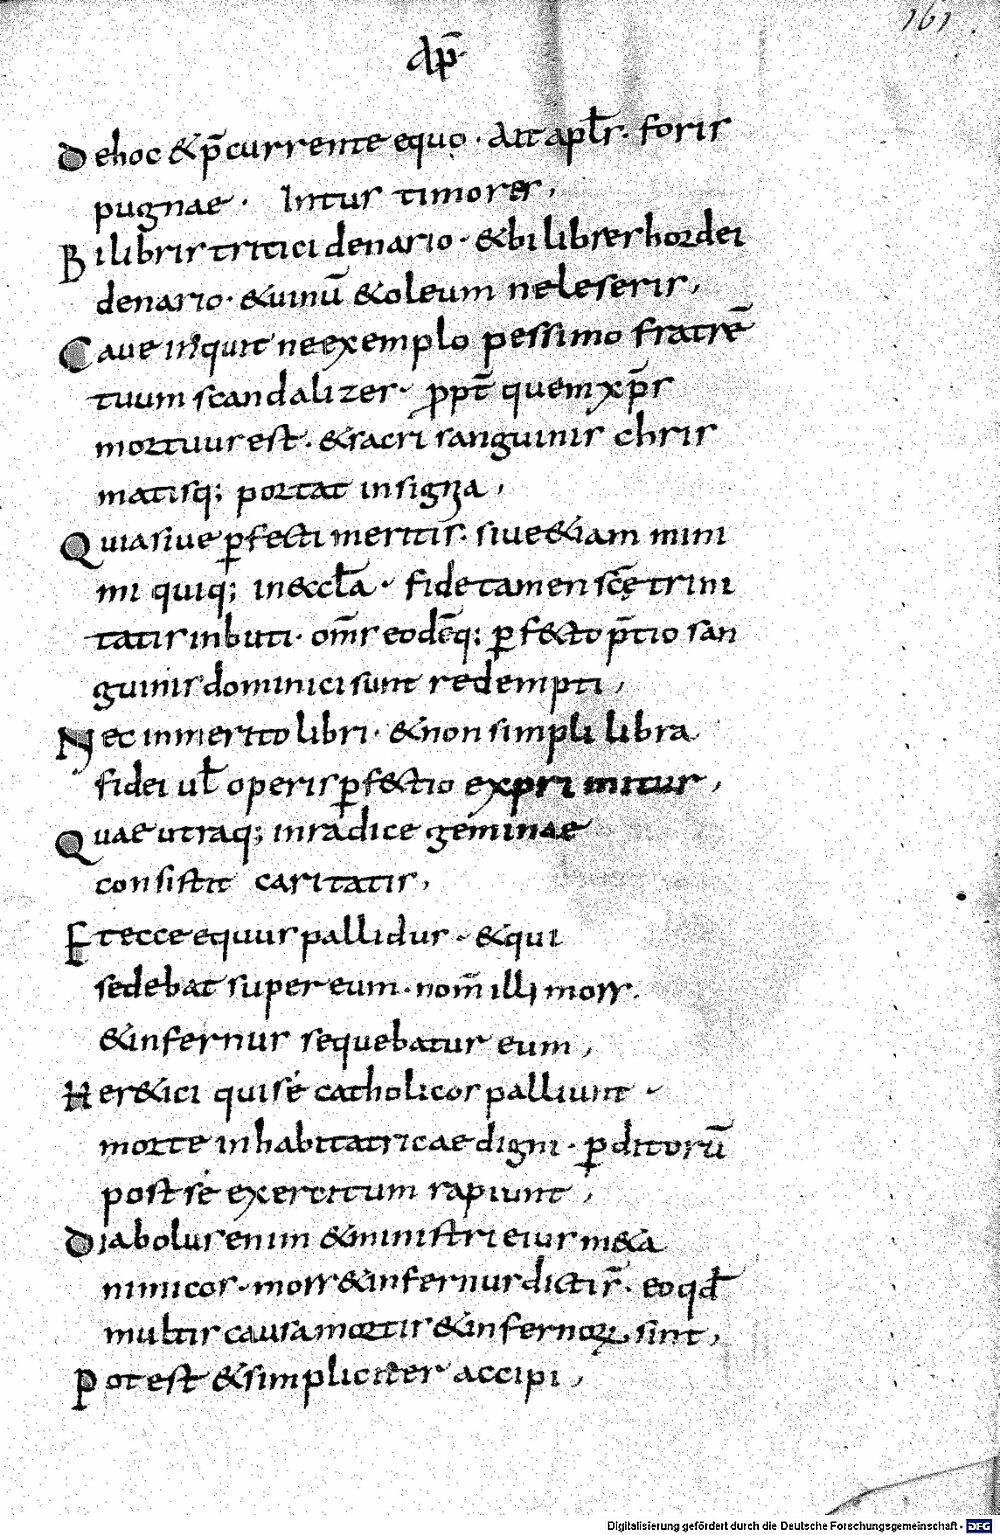 161
Ap̄
De hoc & p̄currente equo · Ait apl̄s · foris
pugnae · Intus timores,
Bilibris tritici denario · & bilibres hordei
denario · & uinū & oleum ne leseris,
Caue inquit ne exemplo pessimo fratrē
tuum scandalizes · ppt̄ quem xp̄s
mortuus est · & sacri sanguinis chris
matisq; portat insigna,
Quia siue ꝑfecti meritis · siue &iam mini
mi quiq; in eccl̄a · fide tamen sc̄ę trini
tatis inbuti · om̄s eodēq; ꝑf&cto p̄tio san
guinis dominici sunt redempti,
Nec inmerito libri · & non simpli libra
fidei ul̄ operis ꝑf&ctio exprimitur,
Quae utraq; in radice geminae
consistit caritatis,
Et ecce equus pallidus · & qui
sedebat super eum · nom̄ illi mors.
& infernus sequebatur eum,
Her&ici qui sé catholicos palliunt ·
morte inhabitatricae digni · ꝑditorū
post sé exercitum rapiunt,
Diabolus enim & ministri eius m&a
nimicos · mors & infernus dicti s̄ · eo qd̄
multis causa mortis & infernoꝝ sint,
Potest & simpliciter accipi,
Digitalisierung gefördert durch die Deutsche Forschungsgemeinschaft - DFG